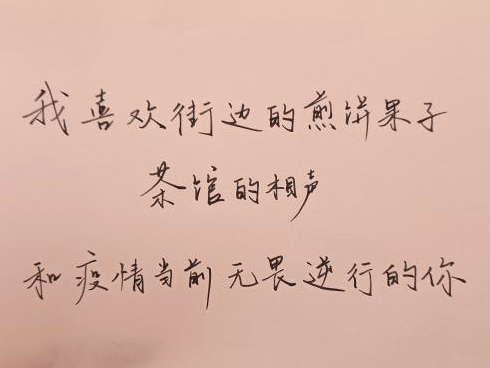 我喜欢街边的煎饼果子
茶馆的相声
和疫情当前无畏逆行的你